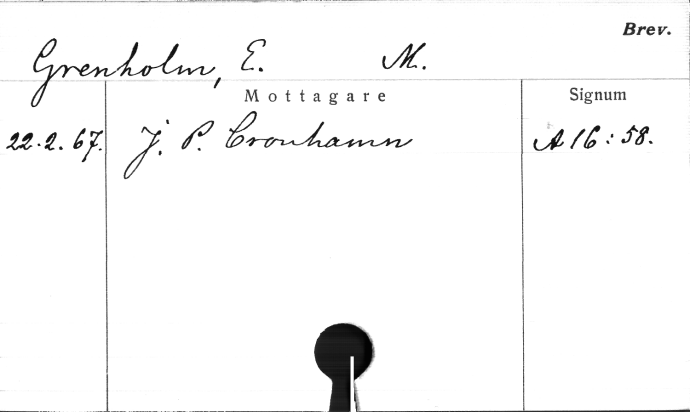 Brev.
Grenholm, E. M.
Mottagare Signum
22.2.67. J. P. Cronhamn A 16:58.